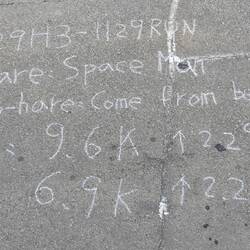 29H3-1129RUN
are: Space Man
-hare: Come from b
: 9.6K ↑22
6.9K ↑22